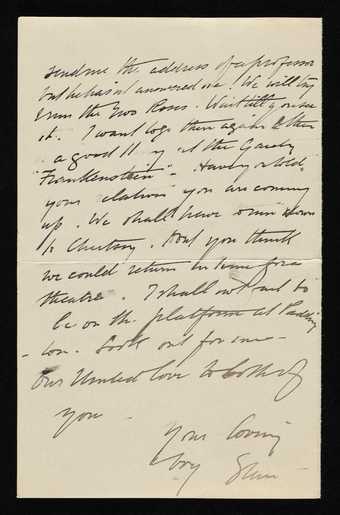 send me the address of a professor
but he hasn't answered me! We will try
& run the Two Roses. Wait till you see
it. I want to go there again & then
a good at the Gaiety
"Frankenstein" -
your relations you are coming
up. We shall have down
to Chertsey. Dont you think
we could return in time for a
theatre. I shall not fail to
be on the platform at Padding
- ton. Look out for me -
Our United love to both of
you -
Your loving
boy